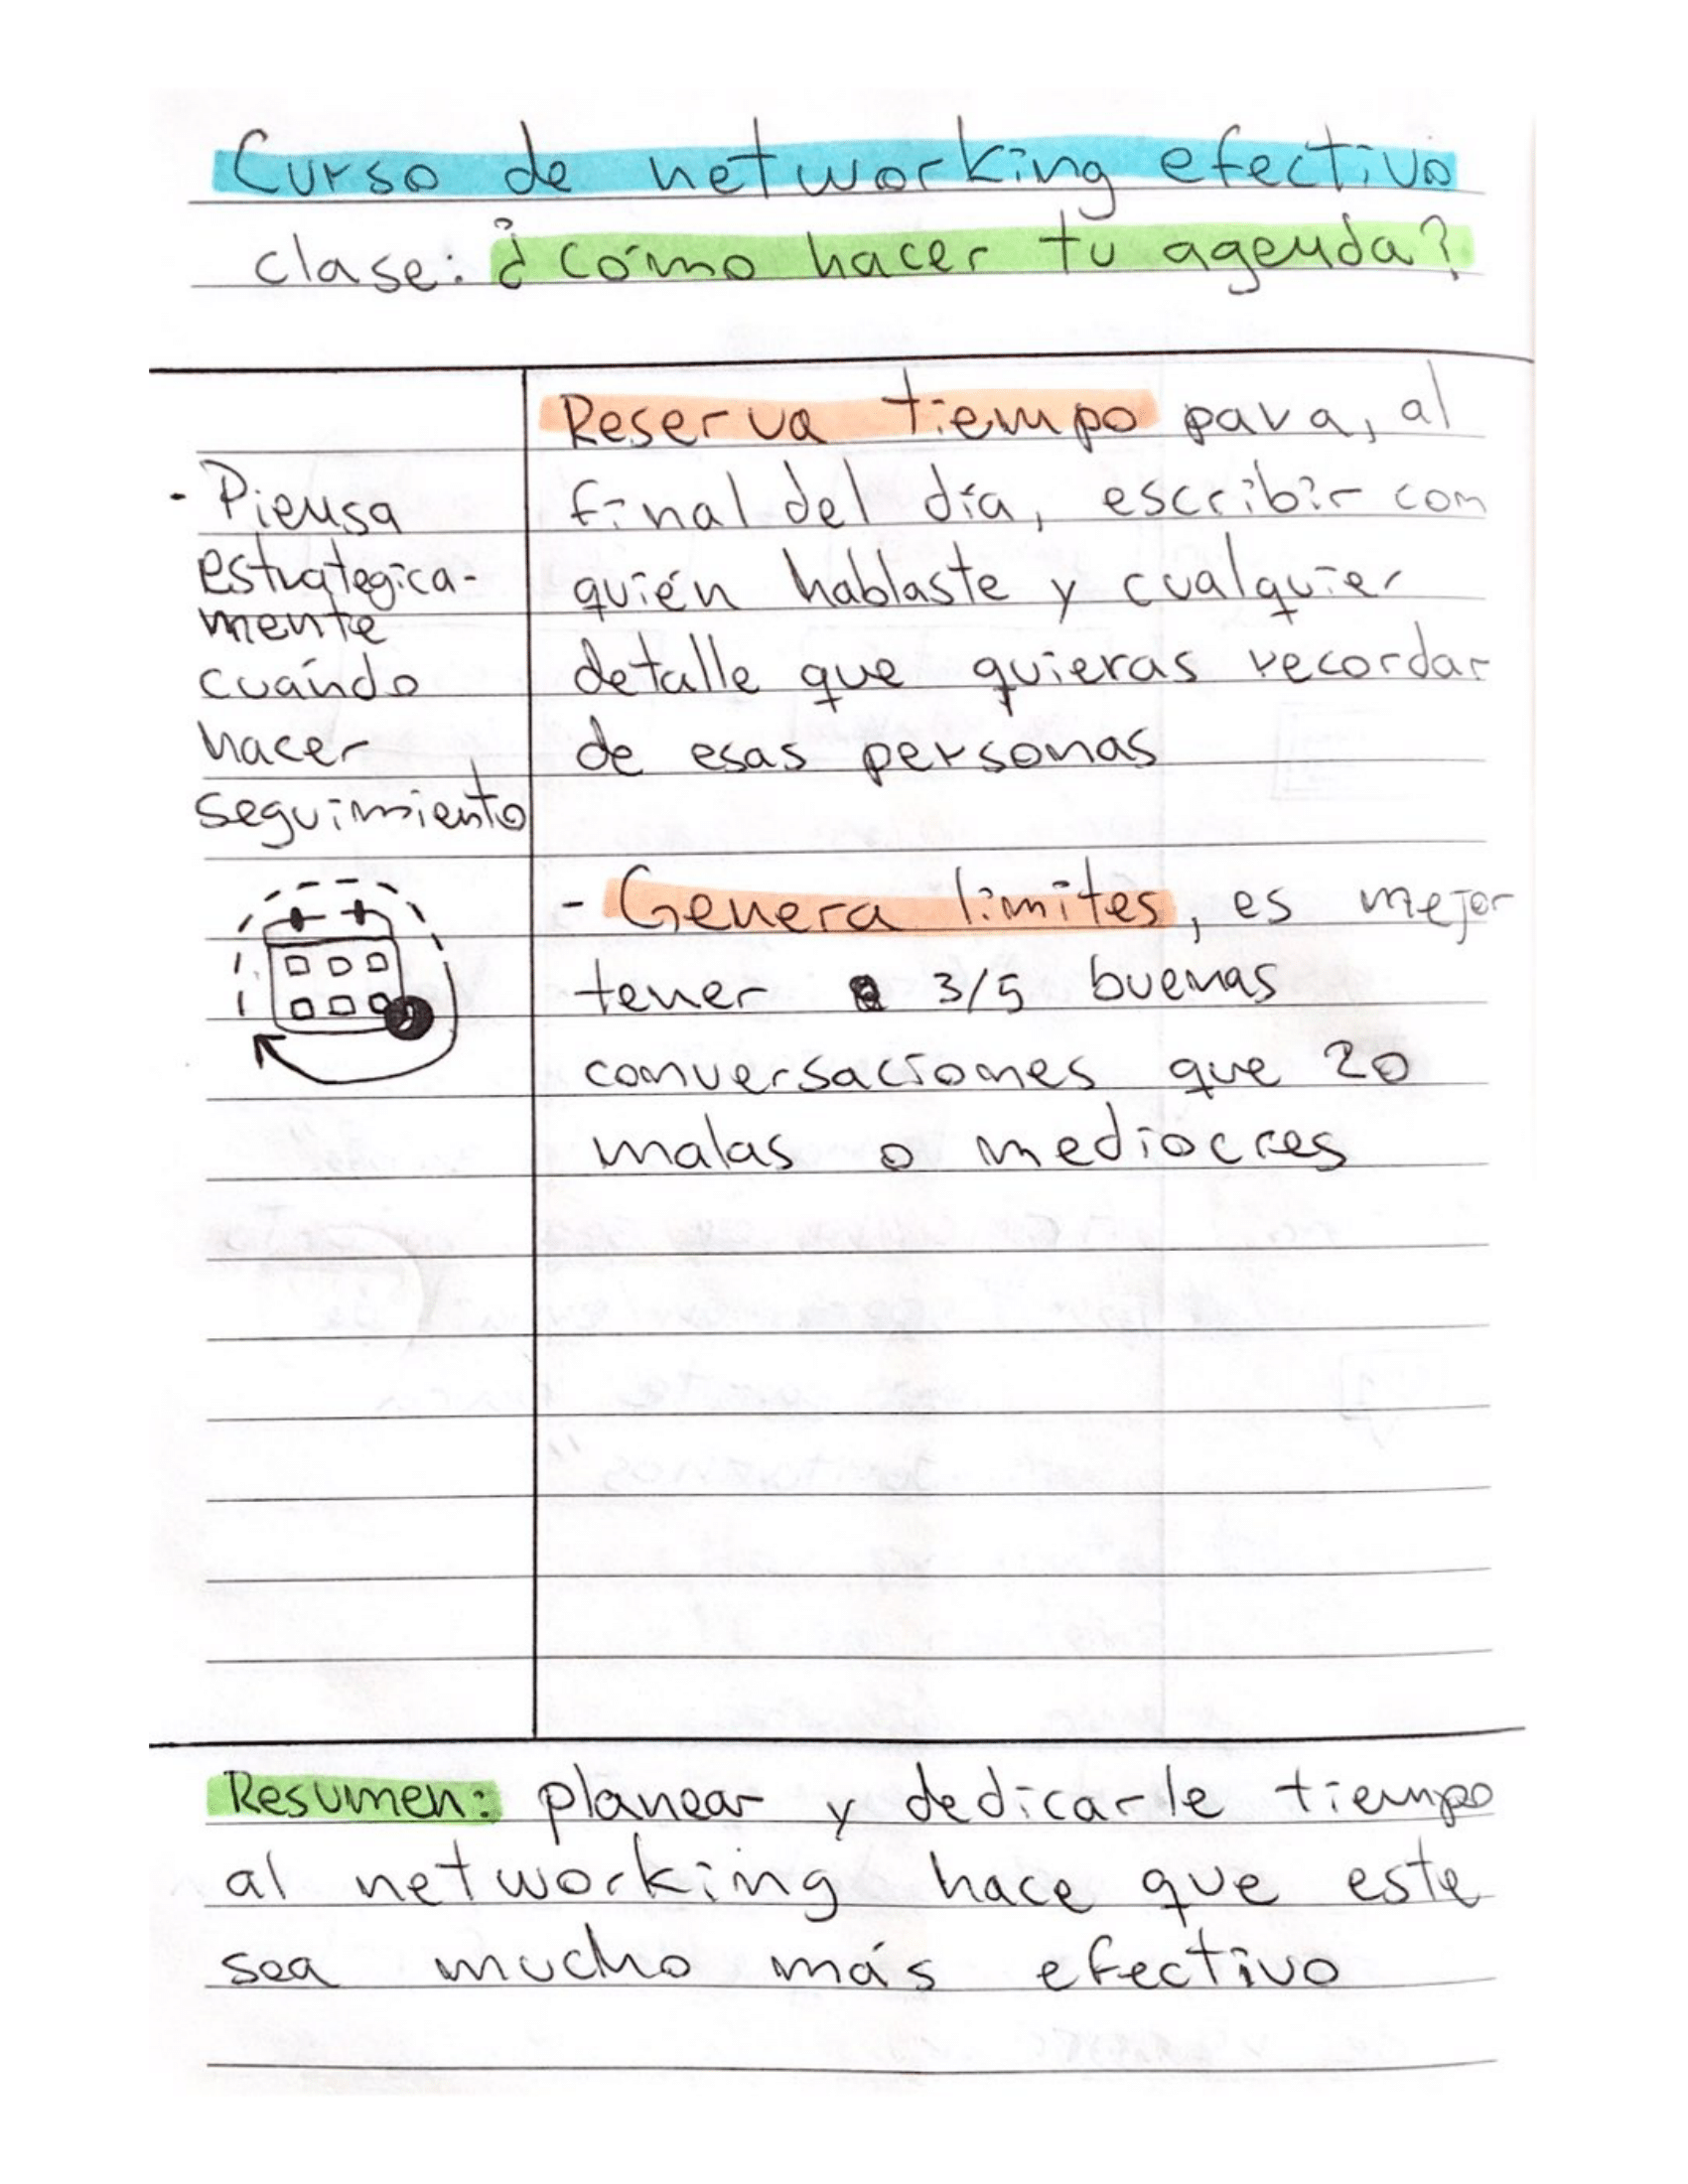 Curso de networking efectivo
clase: ¿cómo hacer tu agenda?
- Piensa
estrategica-
mente
cuándo
hacer
seguimiento
Reserva tiempo para, al
final del día, escribir con
quién hablaste y cualquier
detalle que quieras recordar
de esas personas
- Genera limites, es mejor
tener 3/5 buenas
conversaciones que 20
malas o mediocres
Resumen: planear y dedicarle tiempo
al networking hace que este
sea mucho más efectivo